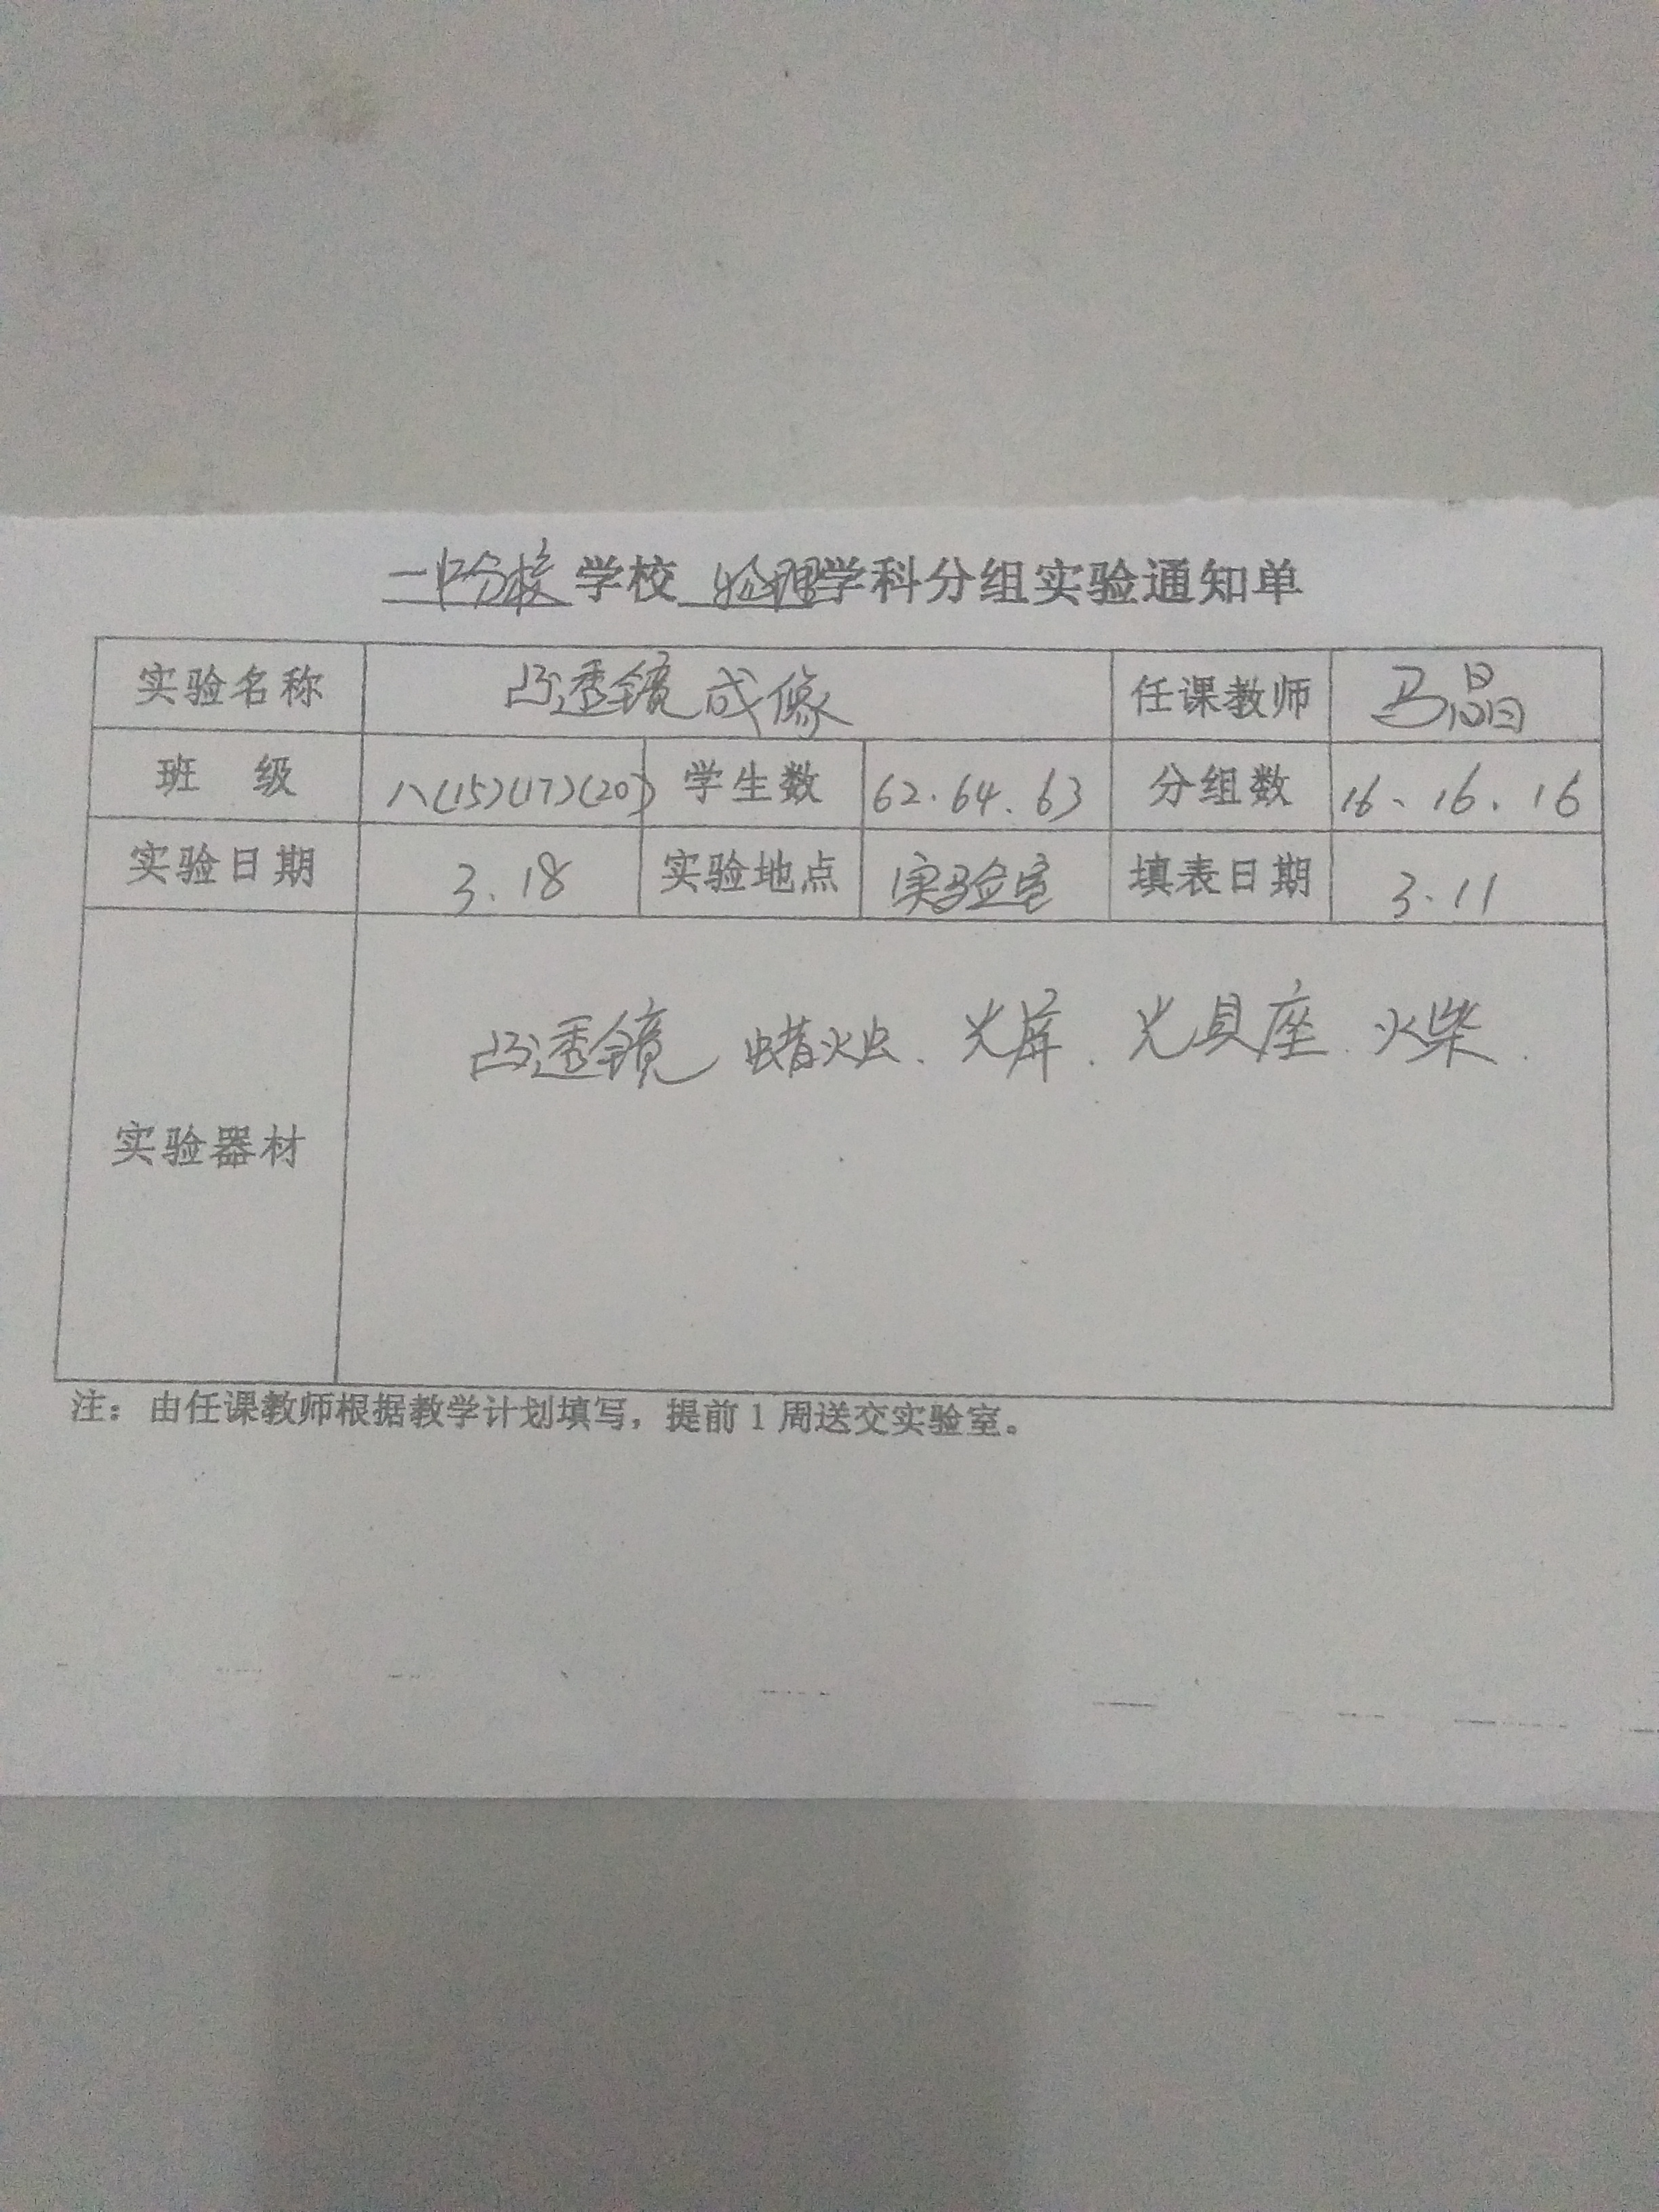 一中分校学校 物理学科分组实验通知单
实验名称 凸透镜成像 任课教师 马晶
班 级 八(15)(17)(20) 学生数 62.64.63 分组数 16、16.16
实验日期 3.18 实验地点 实验室 填表日期 3.11
实验器材 凸透镜 蜡烛、光屏.光具座.火柴.
注：由任课教师根据教学计划填写，提前1周送交实验室。